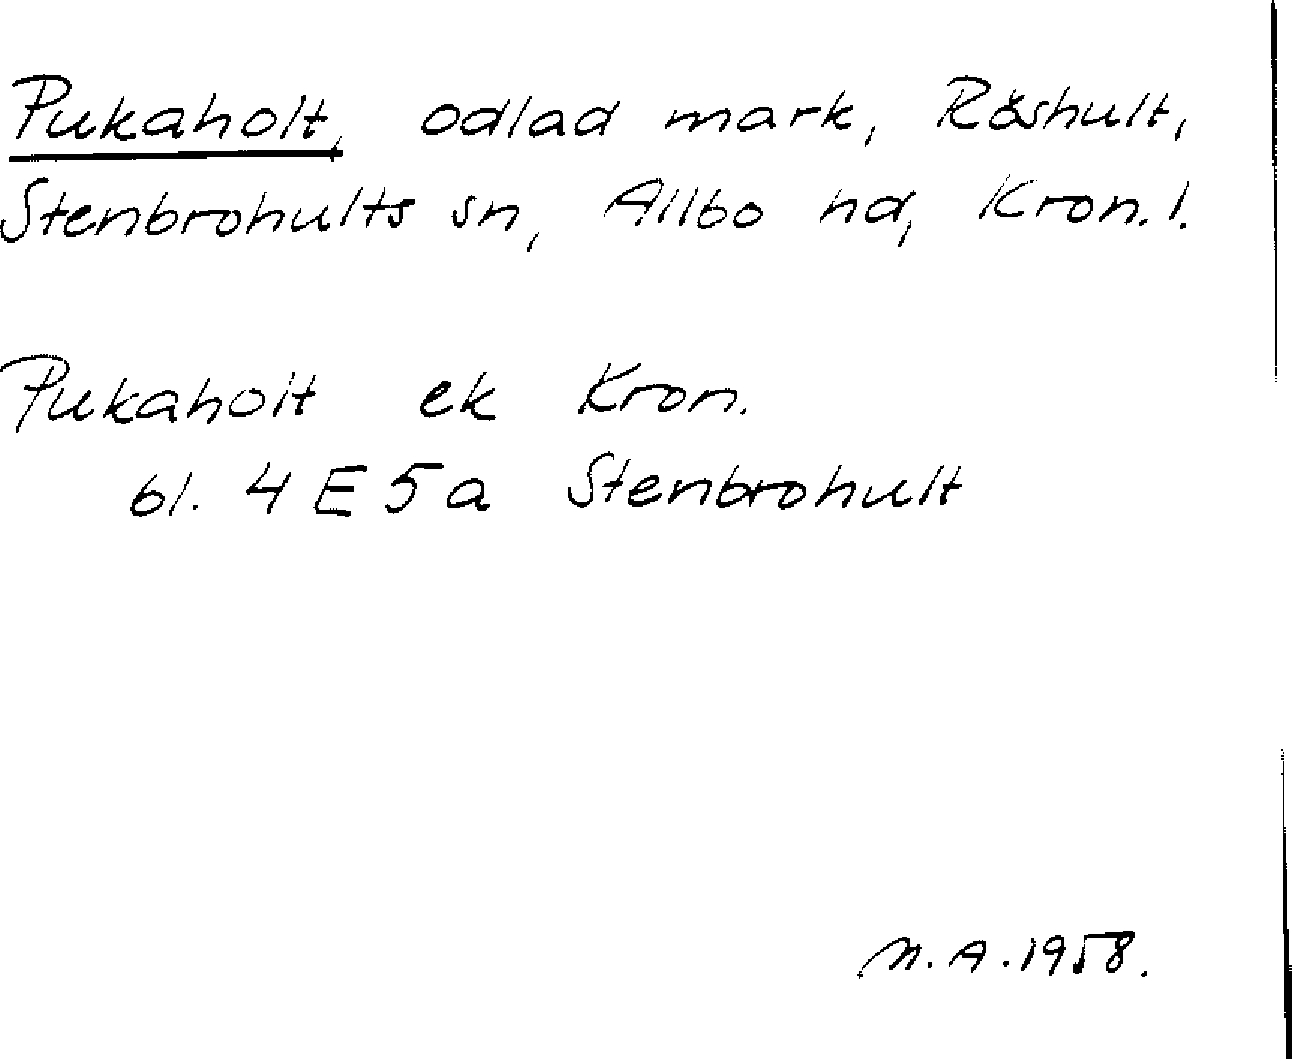 Pukaholt, odlad mark, Råshult,
Stenbrohults sn, Allbo hd, Kron. l.
Pukaholt ek Kron.
bl. 4 E 5 a Stenbrohult
M. A. 1958.